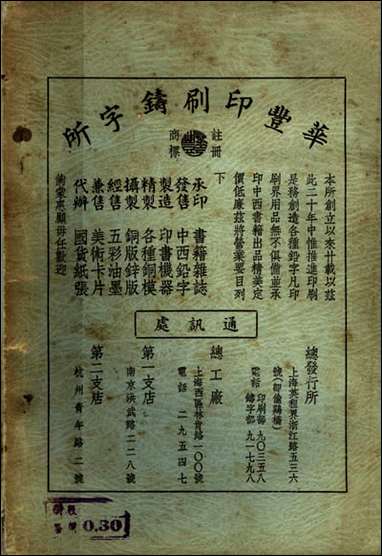 華豐印刷鑄字所
註冊
商標
本所創立以來廿載以茲
此二十年中惟推進印刷
是務創造各種鉛字凡印
刷界用品無不俱備並承
印中西書籍出品精美定
價低廉茲將營業要目列
下
承印 書籍雜誌
發售 中西鉛字
製造 印書機器
精製 各種銅模
攝製 銅版鋅版
經售 五彩油墨
兼售 美術卡片
代辦 國貨紙張
如蒙惠顧毋任歡迎
通訊處
總發行所
上海英租界浙江路五三六
號(偷雞橋)
電話 印刷部 九〇三五八
鑄字部 九一七九八
總工廠
上海西區林肯路一〇〇號
電話 二九五四七
第一支店
南京洪武路二二八號
第二支店
杭州青年路二號
0.30